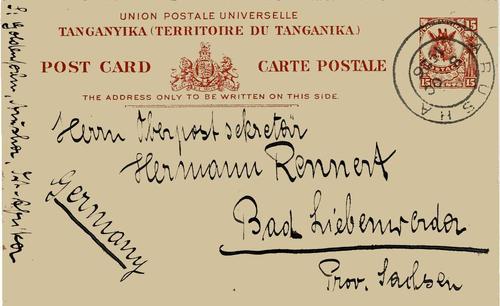 UNION POSTALE UNIVERSELLE
TANGANYIKA (TERRITOIRE DU TANGANIKA)
POST CARD CARTE POSTALE
THE ADDRESS ONLY TO BE WRITTEN ON THIS SIDE.
15 15
ARUSHA
Herrn Oberpostsekretär
Hermann Rennert
Bad Liebenwerda
Prov. Sachsen
Germany